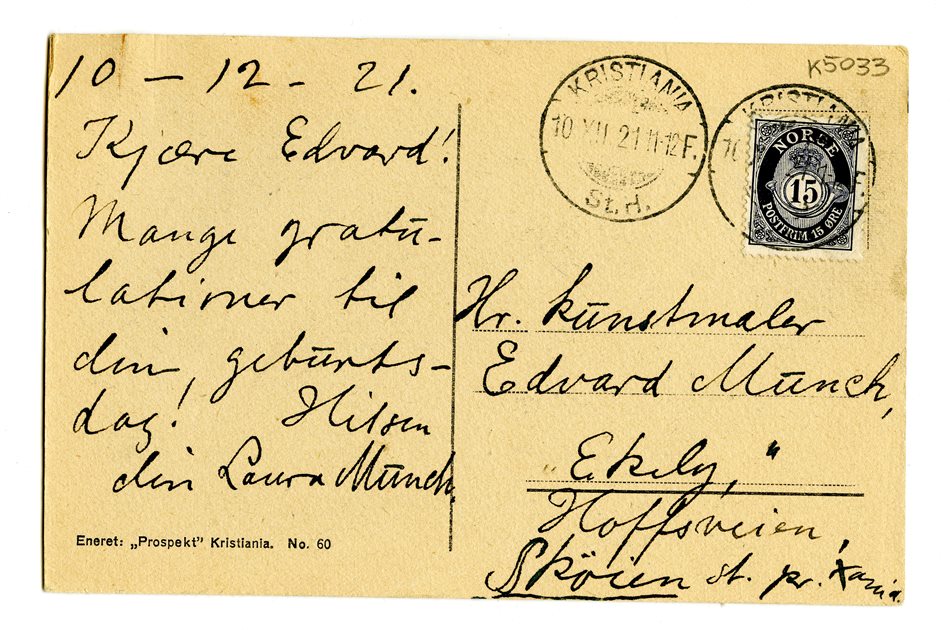 10 – 12 – 21.
Kjære Edvard!
Mange gratu-
lationer til
din, geburts-
dag! Hilsen
din Laura Munch.
Eneret: „Prospekt” Kristiania. No. 60
K5033
KRISTIANIA
10 XII 21 11-12 F.
St. H.
KRISTIANIA
NORGE
15
POSTFRIM 15 ØRE
Hr. kunstmaler
Edvard Munch,
„Ekely,”
Hoffsveien,
Skøien st. pr. Xania.